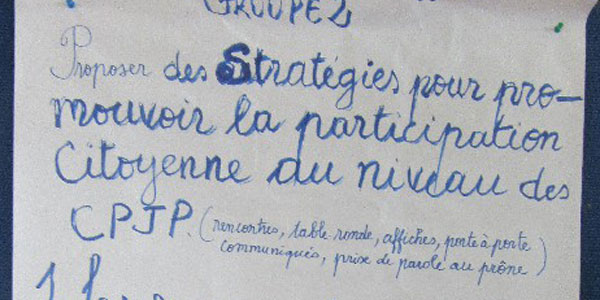 GROUPE 2
Proposer des Stratégies pour pro-
mouvoir la participation
Citoyenne au niveau des
CPJP. (rencontres, table ronde, affiches, porte à porte
communiqués, prise de parole au prône)
1